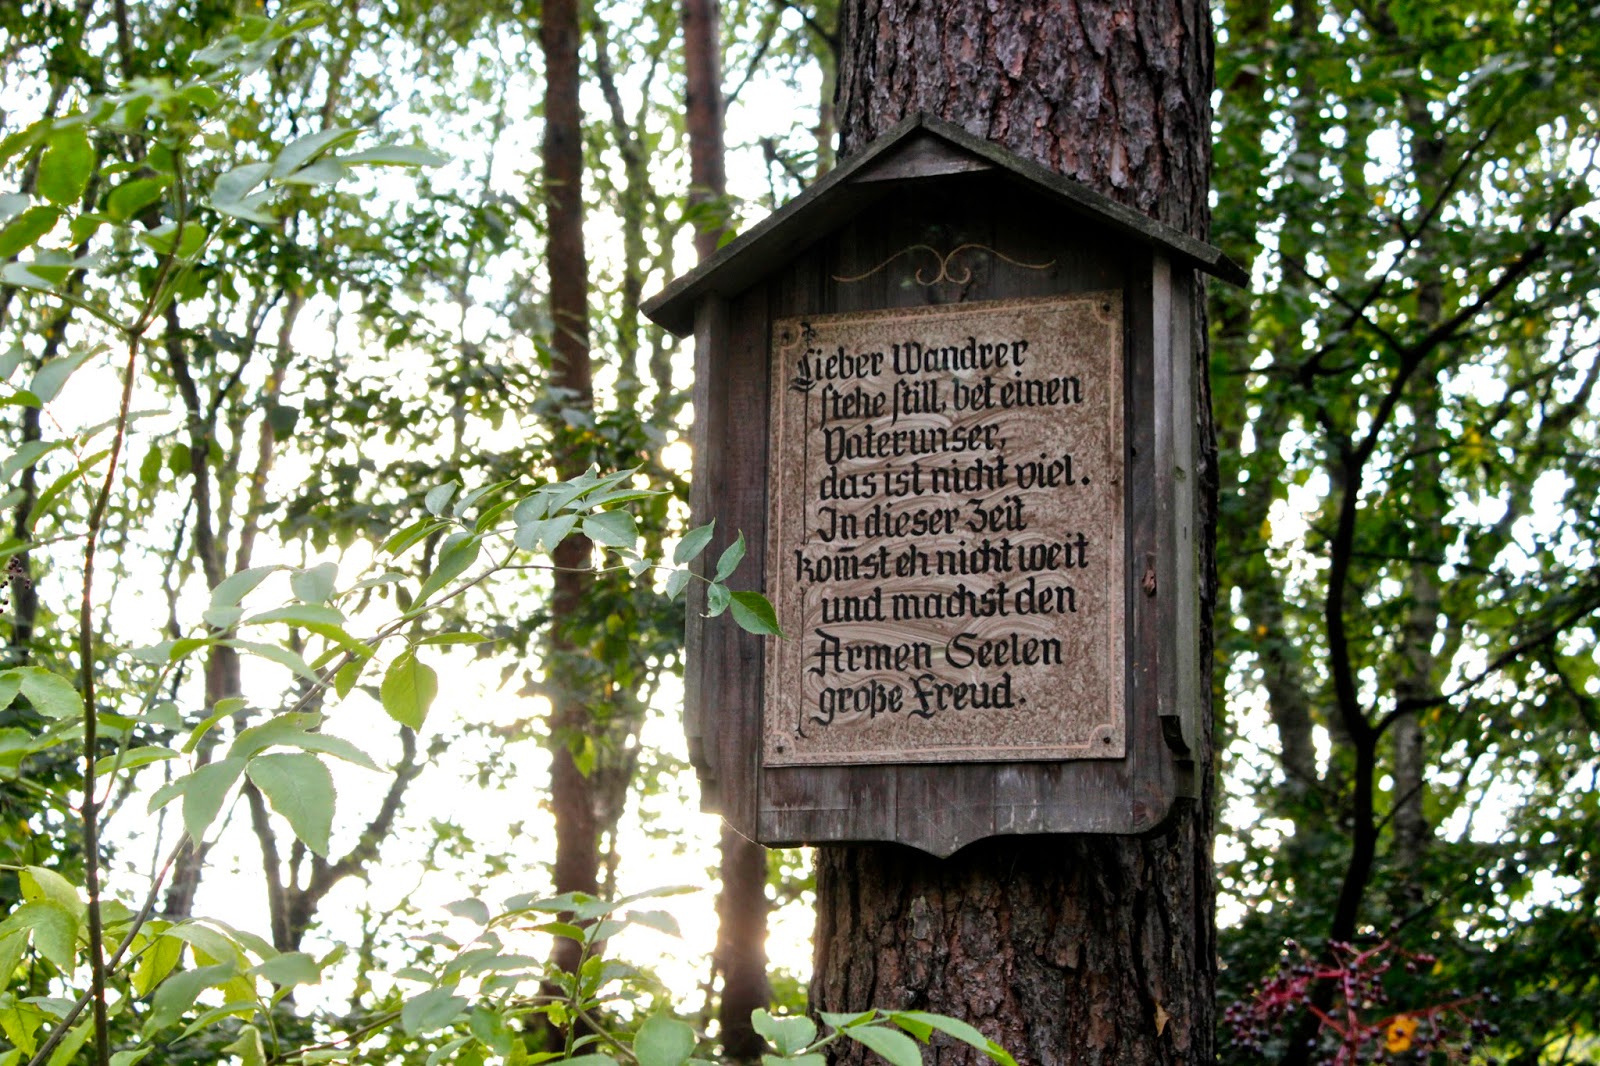 Lieber Wandrer
stehe still, bet einen
Vaterunser,
das ist nicht viel.
In dieser Zeit
kom̅st eh nicht weit
und machst den
Armen Seelen
große Freud.